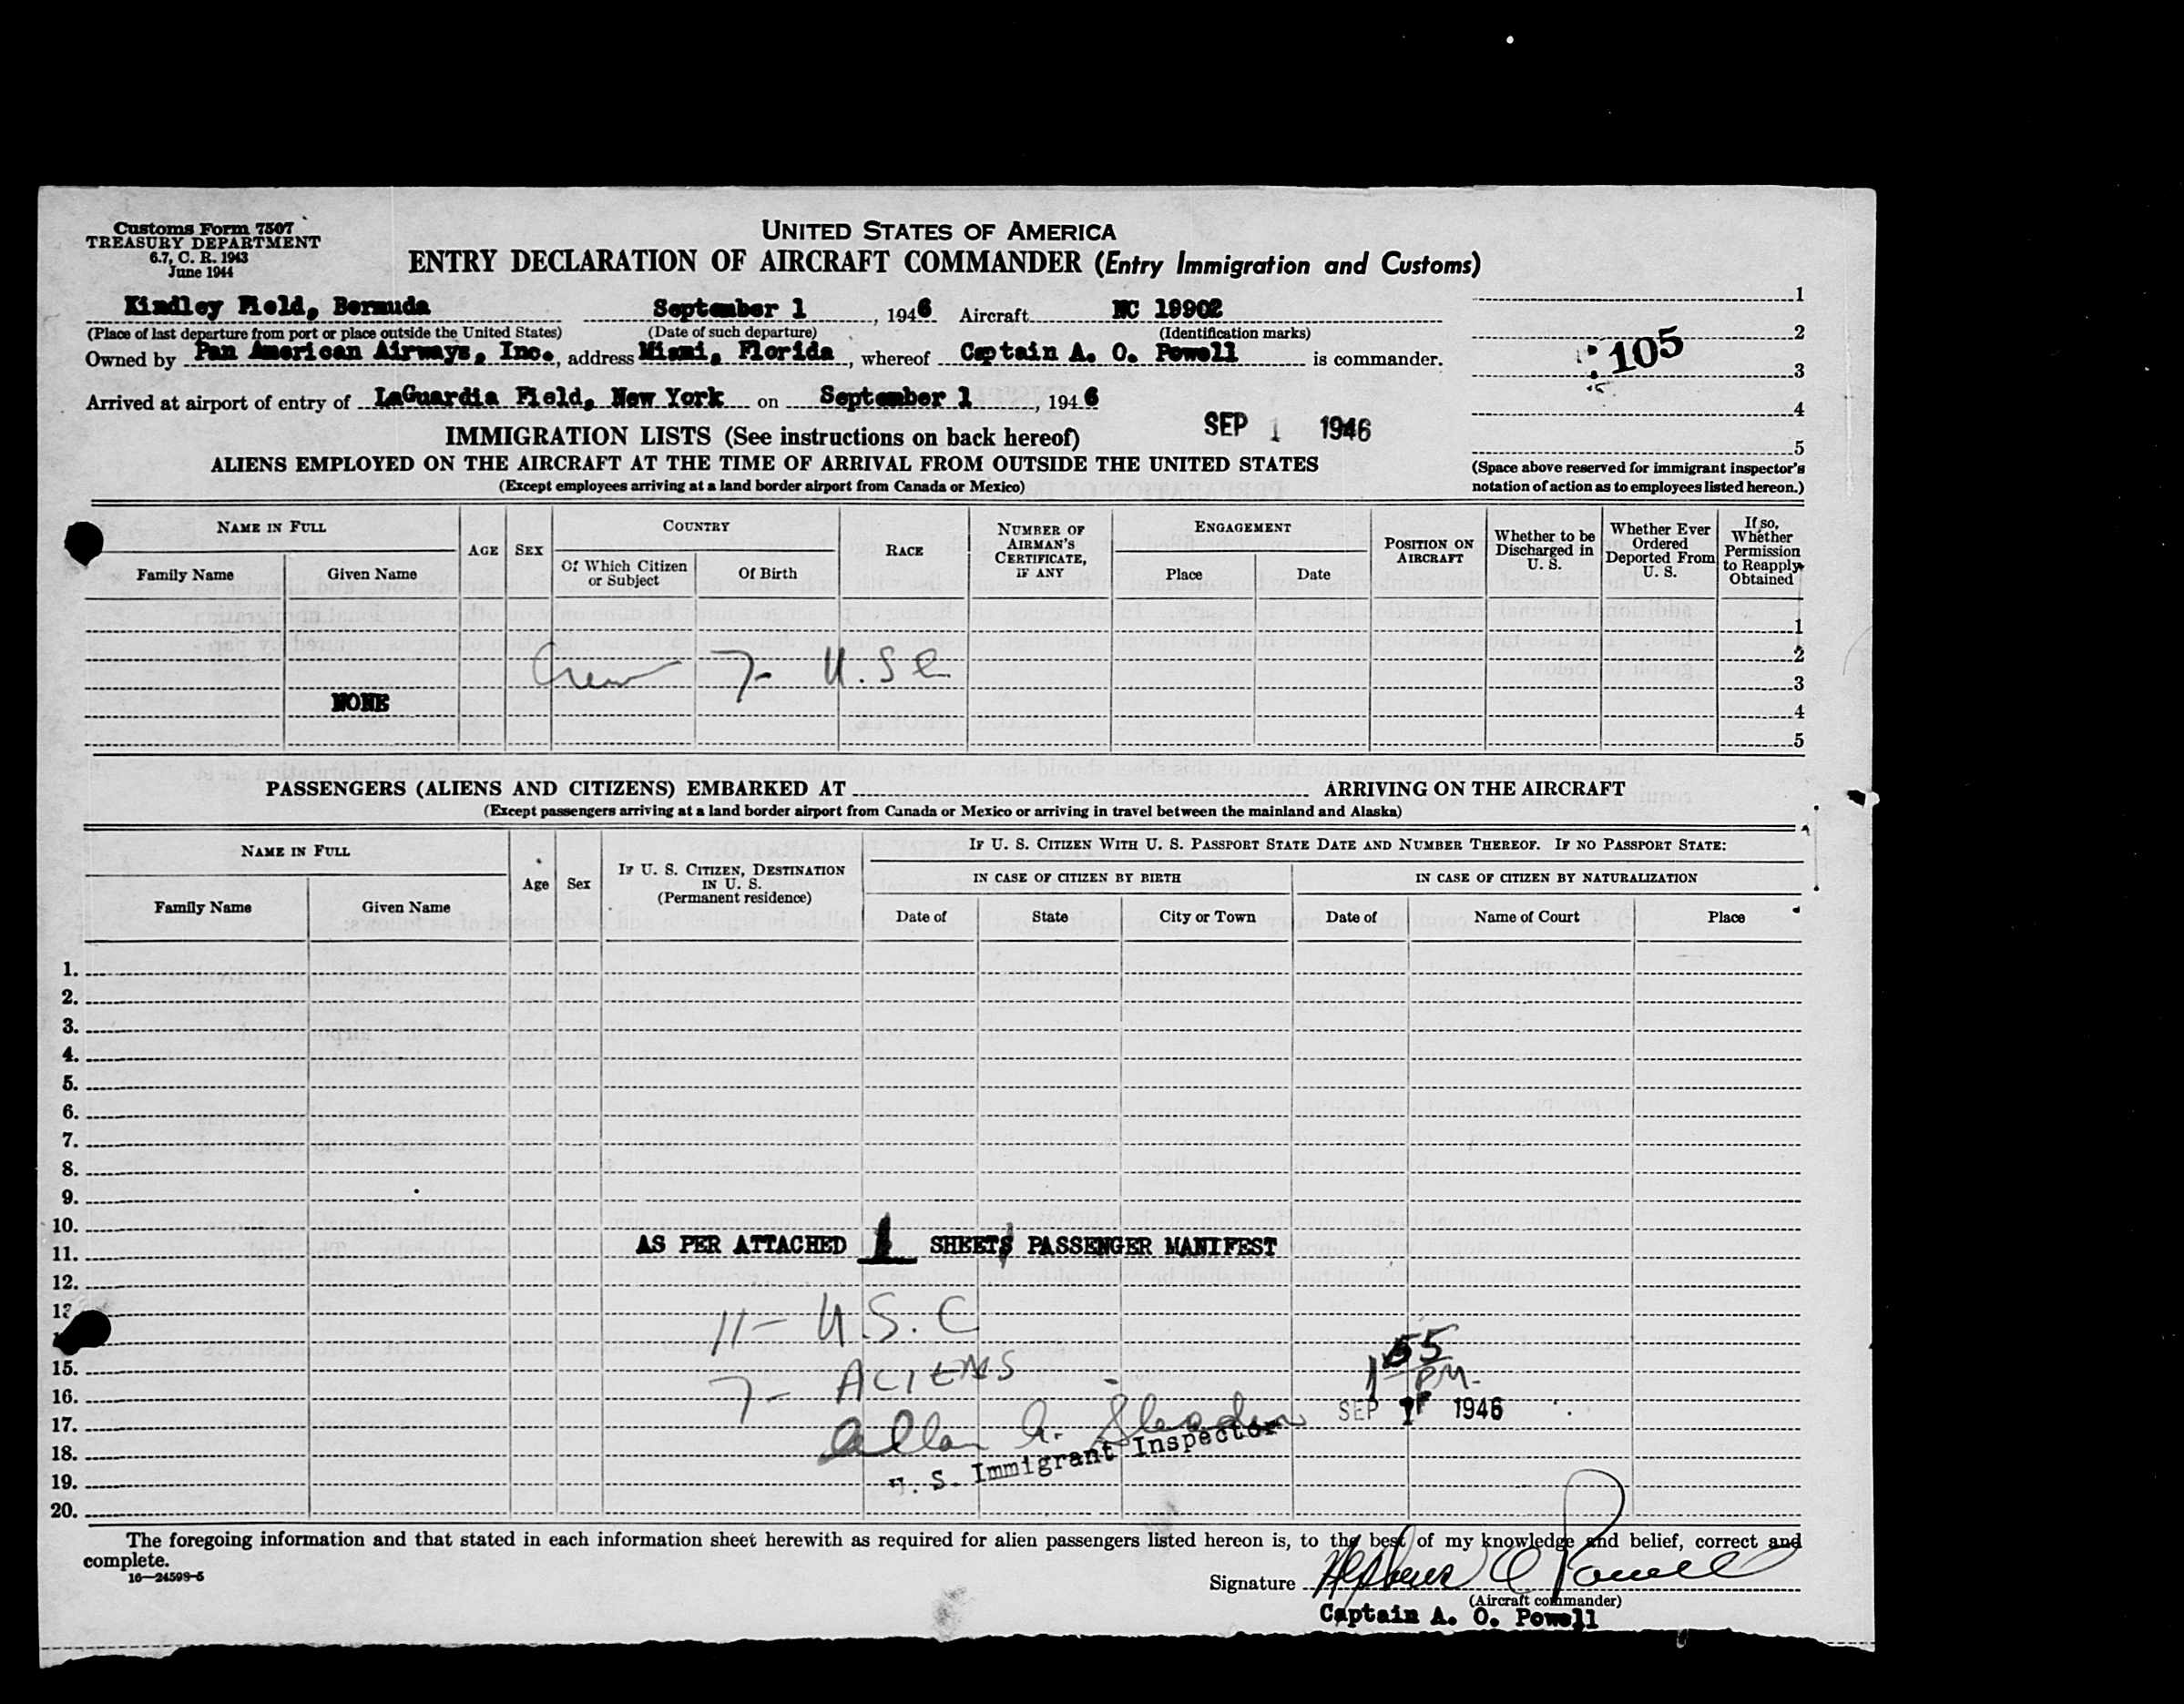 Customs Form 7507
TREASURY DEPARTMENT
6.7, C. R. 1943
June 1944
UNITED STATES OF AMERICA
ENTRY DECLARATION OF AIRCRAFT COMMANDER (Entry Immigration and Customs)
Kindley Field, Bermuda September 1, 1946 Aircraft NC 19902
(Place of last departure from port or place outside the United States) (Date of such departure) (Identification marks)
Owned by Pan American Airways, Inc., address Miami, Florida, whereof Captain A. O. Powell is commander.
Arrived at airport of entry of LaGuardia Field, New York on September 1, 1946
1
2
105
3
4
5
(Space above reserved for immigrant inspector's
notation of action as to employees listed hereon.)
SEP 1 1946
IMMIGRATION LISTS (See instructions on back hereof)
ALIENS EMPLOYED ON THE AIRCRAFT AT THE TIME OF ARRIVAL FROM OUTSIDE THE UNITED STATES
(Except employees arriving at a land border airport from Canada or Mexico)
NAME IN FULL
Family Name
Given Name
AGE
SEX
COUNTRY
Of Which Citizen
or Subject
Of Birth
RACE
NUMBER OF
AIRMAN'S
CERTIFICATE,
IF ANY
ENGAGEMENT
Place
Date
POSITION ON
AIRCRAFT
Whether to be
Discharged in
U. S.
Whether Ever
Ordered
Deported From
U. S.
If so,
Whether
Permission
to Reapply
Obtained
1
2
Crew 7- U.S C
3
NONE
4
5
PASSENGERS (ALIENS AND CITIZENS) EMBARKED AT ARRIVING ON THE AIRCRAFT
(Except passengers arriving at a land border airport from Canada or Mexico or arriving in travel between the mainland and Alaska)
NAME IN FULL
Family Name
Given Name
Age
Sex
IF U. S. CITIZEN, DESTINATION
IN U. S.
(Permanent residence)
IF U. S. CITIZEN WITH U. S. PASSPORT STATE DATE AND NUMBER THEREOF. IF NO PASSPORT STATE:
IN CASE OF CITIZEN BY BIRTH
IN CASE OF CITIZEN BY NATURALIZATION
Date of
State
City or Town
Date of
Name of Court
Place
1.
2.
3.
4.
5.
6.
7.
8.
9.
10.
11. AS PER ATTACHED 1 SHEET PASSENGER MANIFEST
12.
13
11- U.S.C
15.
7- ALIENS
155 PM.
16.
SEP 1 1946
17.
Allan
18.
U. S. Immigrant Inspector
19.
20.
The foregoing information and that stated in each information sheet herewith as required for alien passengers listed hereon is, to the best of my knowledge and belief, correct and
complete.
16—24598-5
Signature
(Aircraft commander)
Captain A. O. Powell